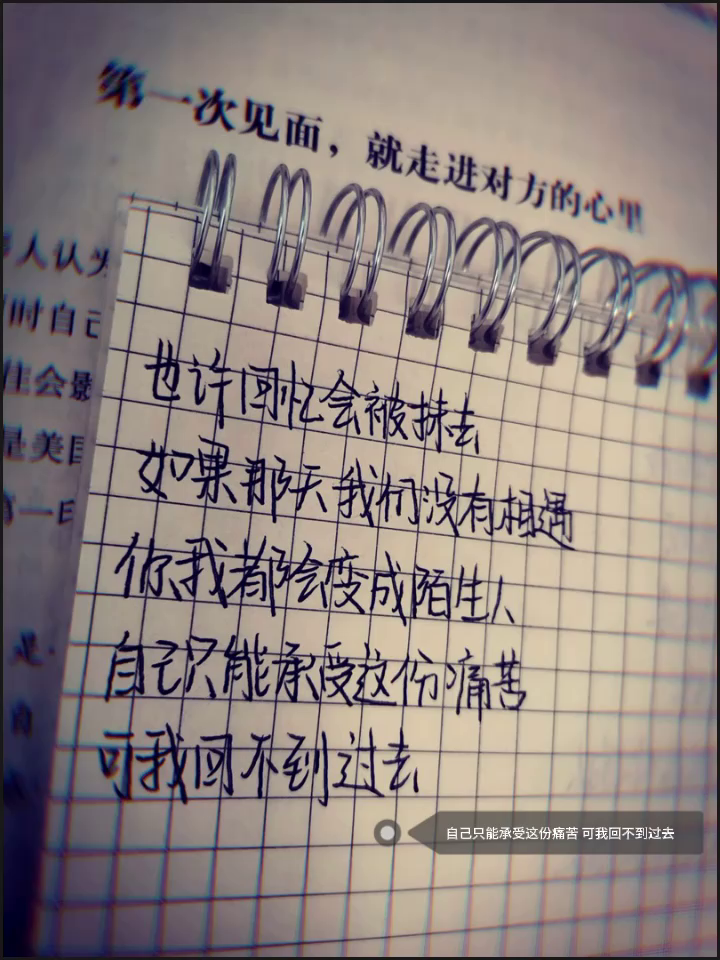 第一次见面，就走进对方的心里
人认为
时自己
住会影
是美国
第一印
是
自
也许回忆会被抹去
如果那天我们没有相遇
你我都会变成陌生人
自己只能承受这份痛苦
可我回不到过去
自己只能承受这份痛苦 可我回不到过去